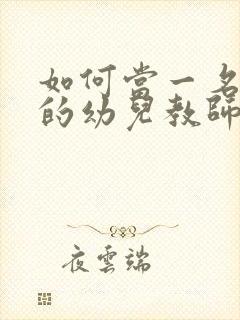 如何當一名
的幼兒教師
夜雲端